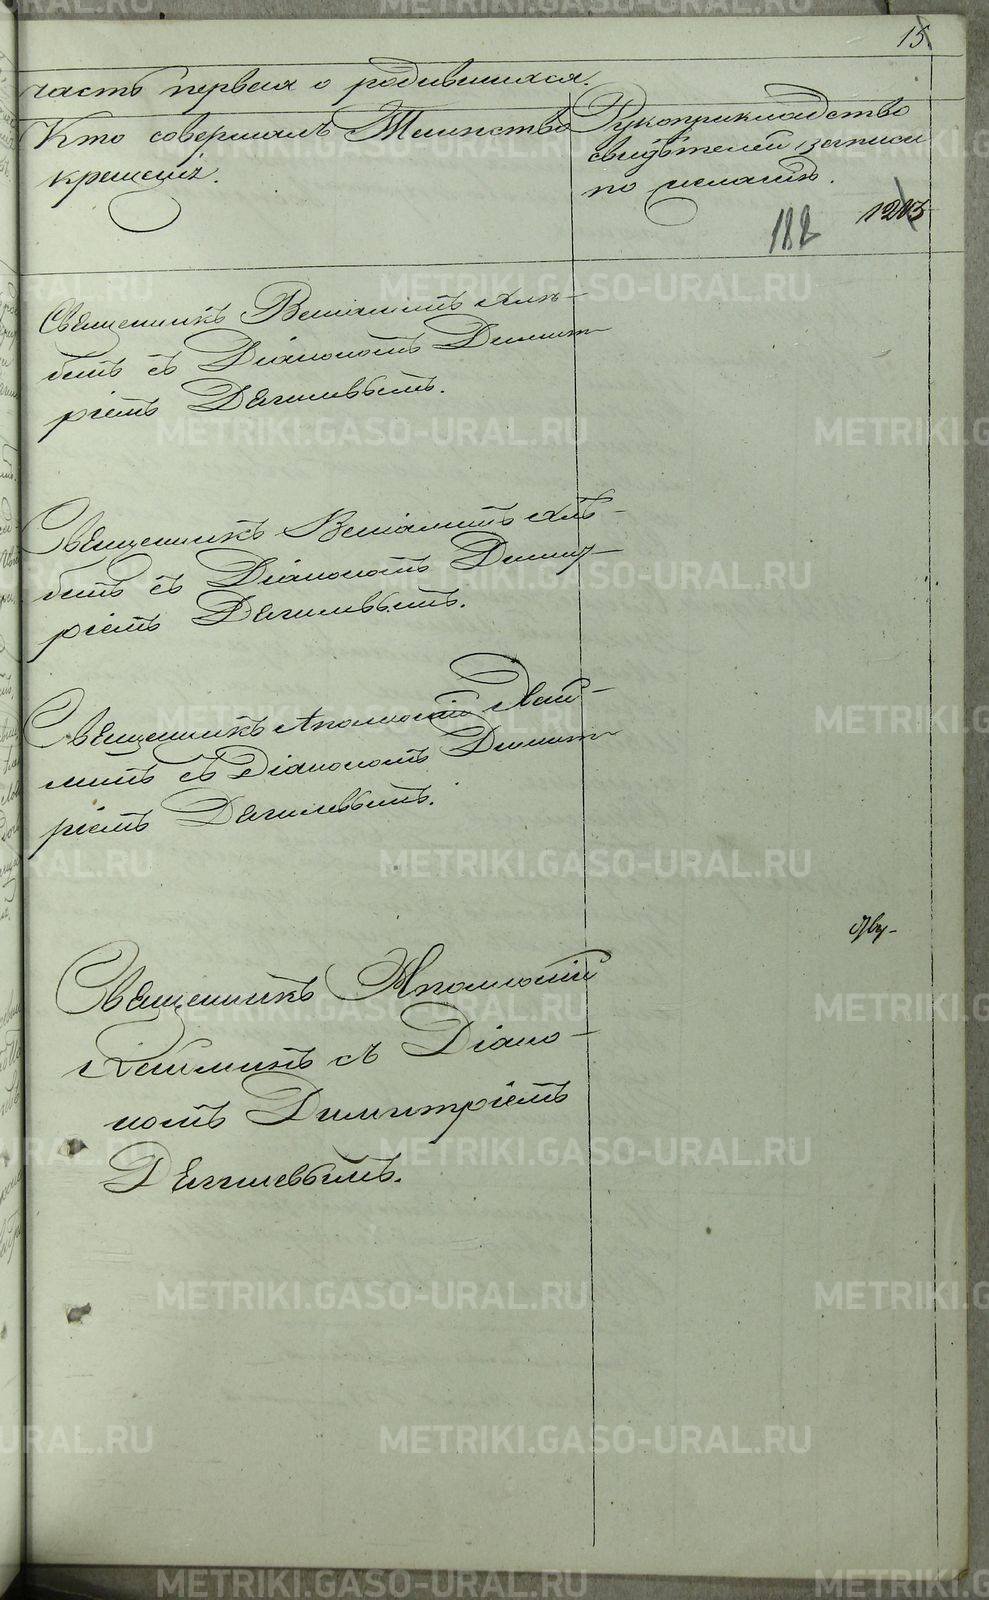 15
часть первая о родившихся.
Кто совершалъ Таинство
крещенія.
Рукоприкладство
свидѣтелей записи
по желанію.
182
Священникъ
съ Діакономъ Димит-
ріемъ Дягилевымъ.
Священникъ
съ Діакономъ Димит-
ріемъ Дягилевымъ.
Священникъ Аполлоній
съ Діакономъ Димит-
ріемъ Дягилевымъ.
Священникъ Аполлоній
съ Діако-
номъ Димитріемъ
Дягилевымъ.
METRIKI.GASO-URAL.RU